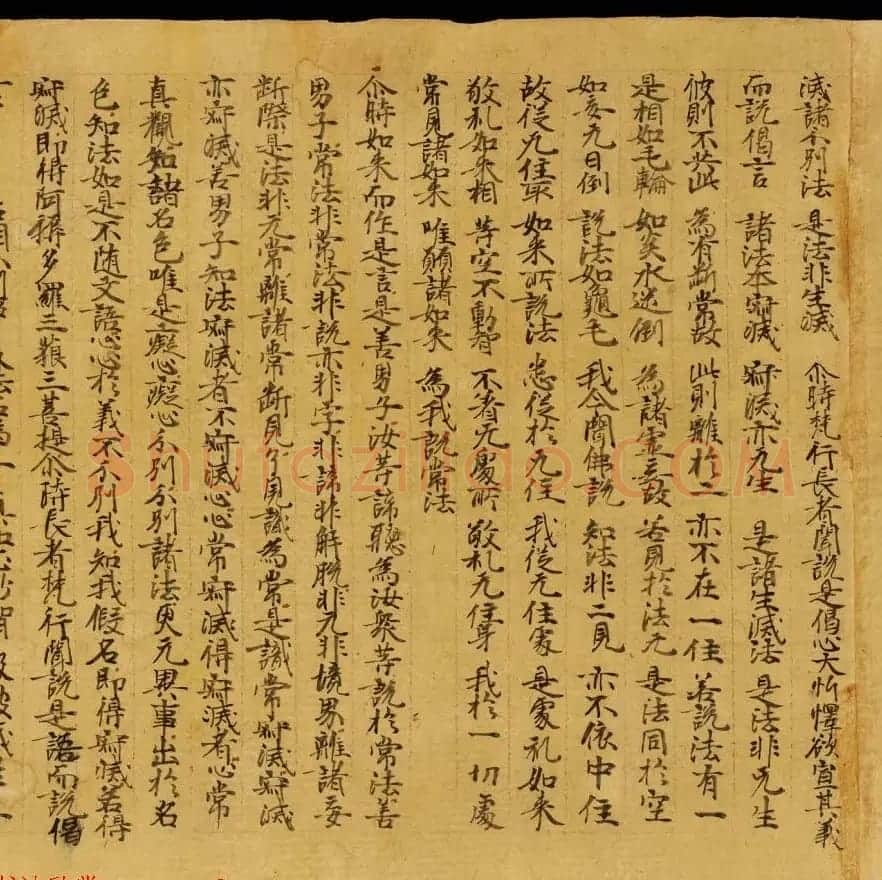 滅諸分別法 是法非生滅 尒時梵行長者聞說是偈心大忻懌欲宣其義
而說偈言 諸法本寂滅 寂滅亦无生 是諸生滅法 是法非无生
彼則不共此 為有断常故 此則離於二 亦不在一住 若說法有一
是相如毛輪 如炎水迷倒 為諸虛妄故 若見於法无 是法同於空
如妄无日倒 說法如龜毛 我今聞佛說 知法非二見 亦不依中住
故從无住取 如来所說法 悉從於无住 我從无住處 是處礼如来
敬礼如来相 等空不動智 不者无處所 敬礼无住身 我於一切處
常見諸如来 唯願諸如来 為我說常法
尒時如来而作是言是善男子汝等諦聽為汝衆等說於常法善
男子常法非常法非說亦非字非諦非解脫非无非境界離諸妄
断際是法非无常離諸常断見了見識為常是識常寂滅寂滅
亦寂滅善男子知法寂滅者不寂滅心心常寂滅得寂滅者心常
真觀知諸名色唯是癡心癡心分別分別諸法更无異事出於名
色知法如是不随文語心心於義不分別我知我假名即得寂滅若得
寂滅即得阿耨多羅三藐三菩提尒時長者梵行聞說是語而說偈